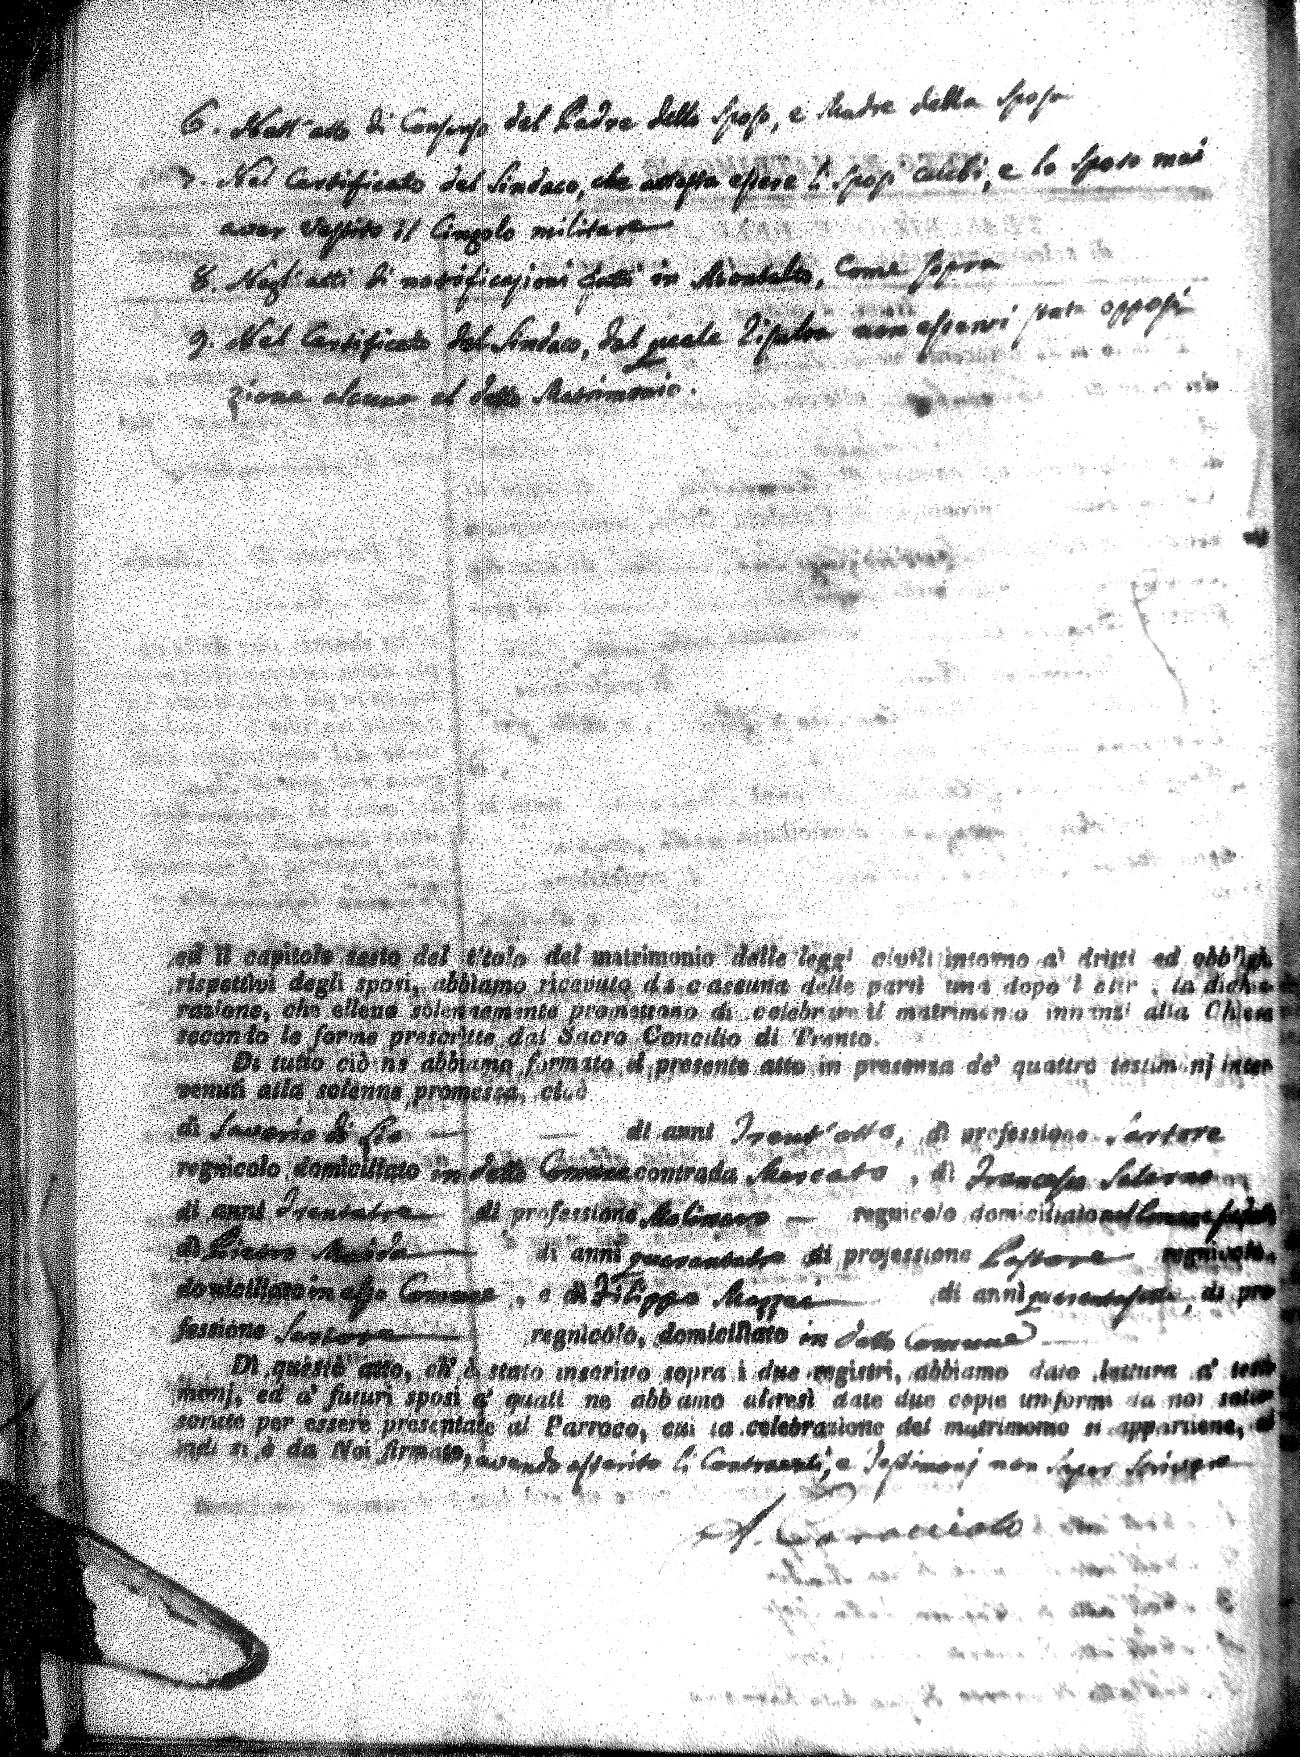 6. Nell'atto di Consenso del Padre dello Sposo, e Madre della Sposa
7. Nel Certificato del Sindaco, che attesta essere li Sposi celibi, e lo Sposo mai
aver vestito il Cingolo militare
8. Negl'atti di notificazioni fatti in Montalto, come sopra
9. Nel Certificato del Sindaco, dal quale risulta non esservi stata opposi
zione alcuna al detto Matrimonio.
ed il capitolo sesto del titolo del matrimonio delle leggi civili intorno a' dritti ed obblighi
rispettivi degli sposi, abbiamo ricevuto da ciascuna delle parti una dopo l'altra, la dichia-
razione, che elleno solennemente promettono di celebrare il matrimonio innanzi alla Chiesa
secondo le forme prescritte dal Sacro Concilio di Trento.
Di tutto ciò ne abbiamo formato il presente atto in presenza de' quattro testimonj inter-
venuti alla solenne promessa, cioè
di Saverio di di anni Trent'otto, di professione Sartore
regnicolo domiciliato in detto Comune contrada Mercato, di Francesco Salerno
di anni Trentatre di professione Molinaro regnicolo domiciliato
di Pietro di anni quarantatre di professione Pastore regnicolo,
domiciliato in esso Comune, e di Filippo Mazzei di anni, di pro
fessione Sartore regnicolo, domiciliato in detto Comune
Di questo atto, ch'è stato inscritto sopra i due registri, abbiamo dato lettura a' testi-
monj, ed a' futuri sposi a' quali ne abbiamo altresì date due copie uniformi da noi sotto-
scritte per essere presentate al Parroco, cui la celebrazione del matrimonio si appartiene, ed
indi si è da Noi firmato, avendo asserito li Contraenti, e Testimonj non saper scrivere
A. Caracciolo